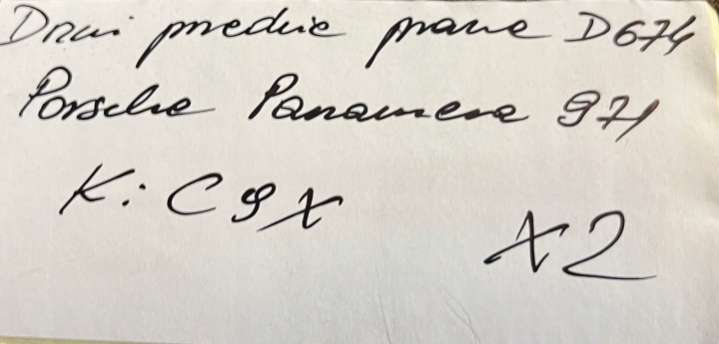 Drzwi przednie prawe D674
Porsche Panamera 971
K: C9X
X2